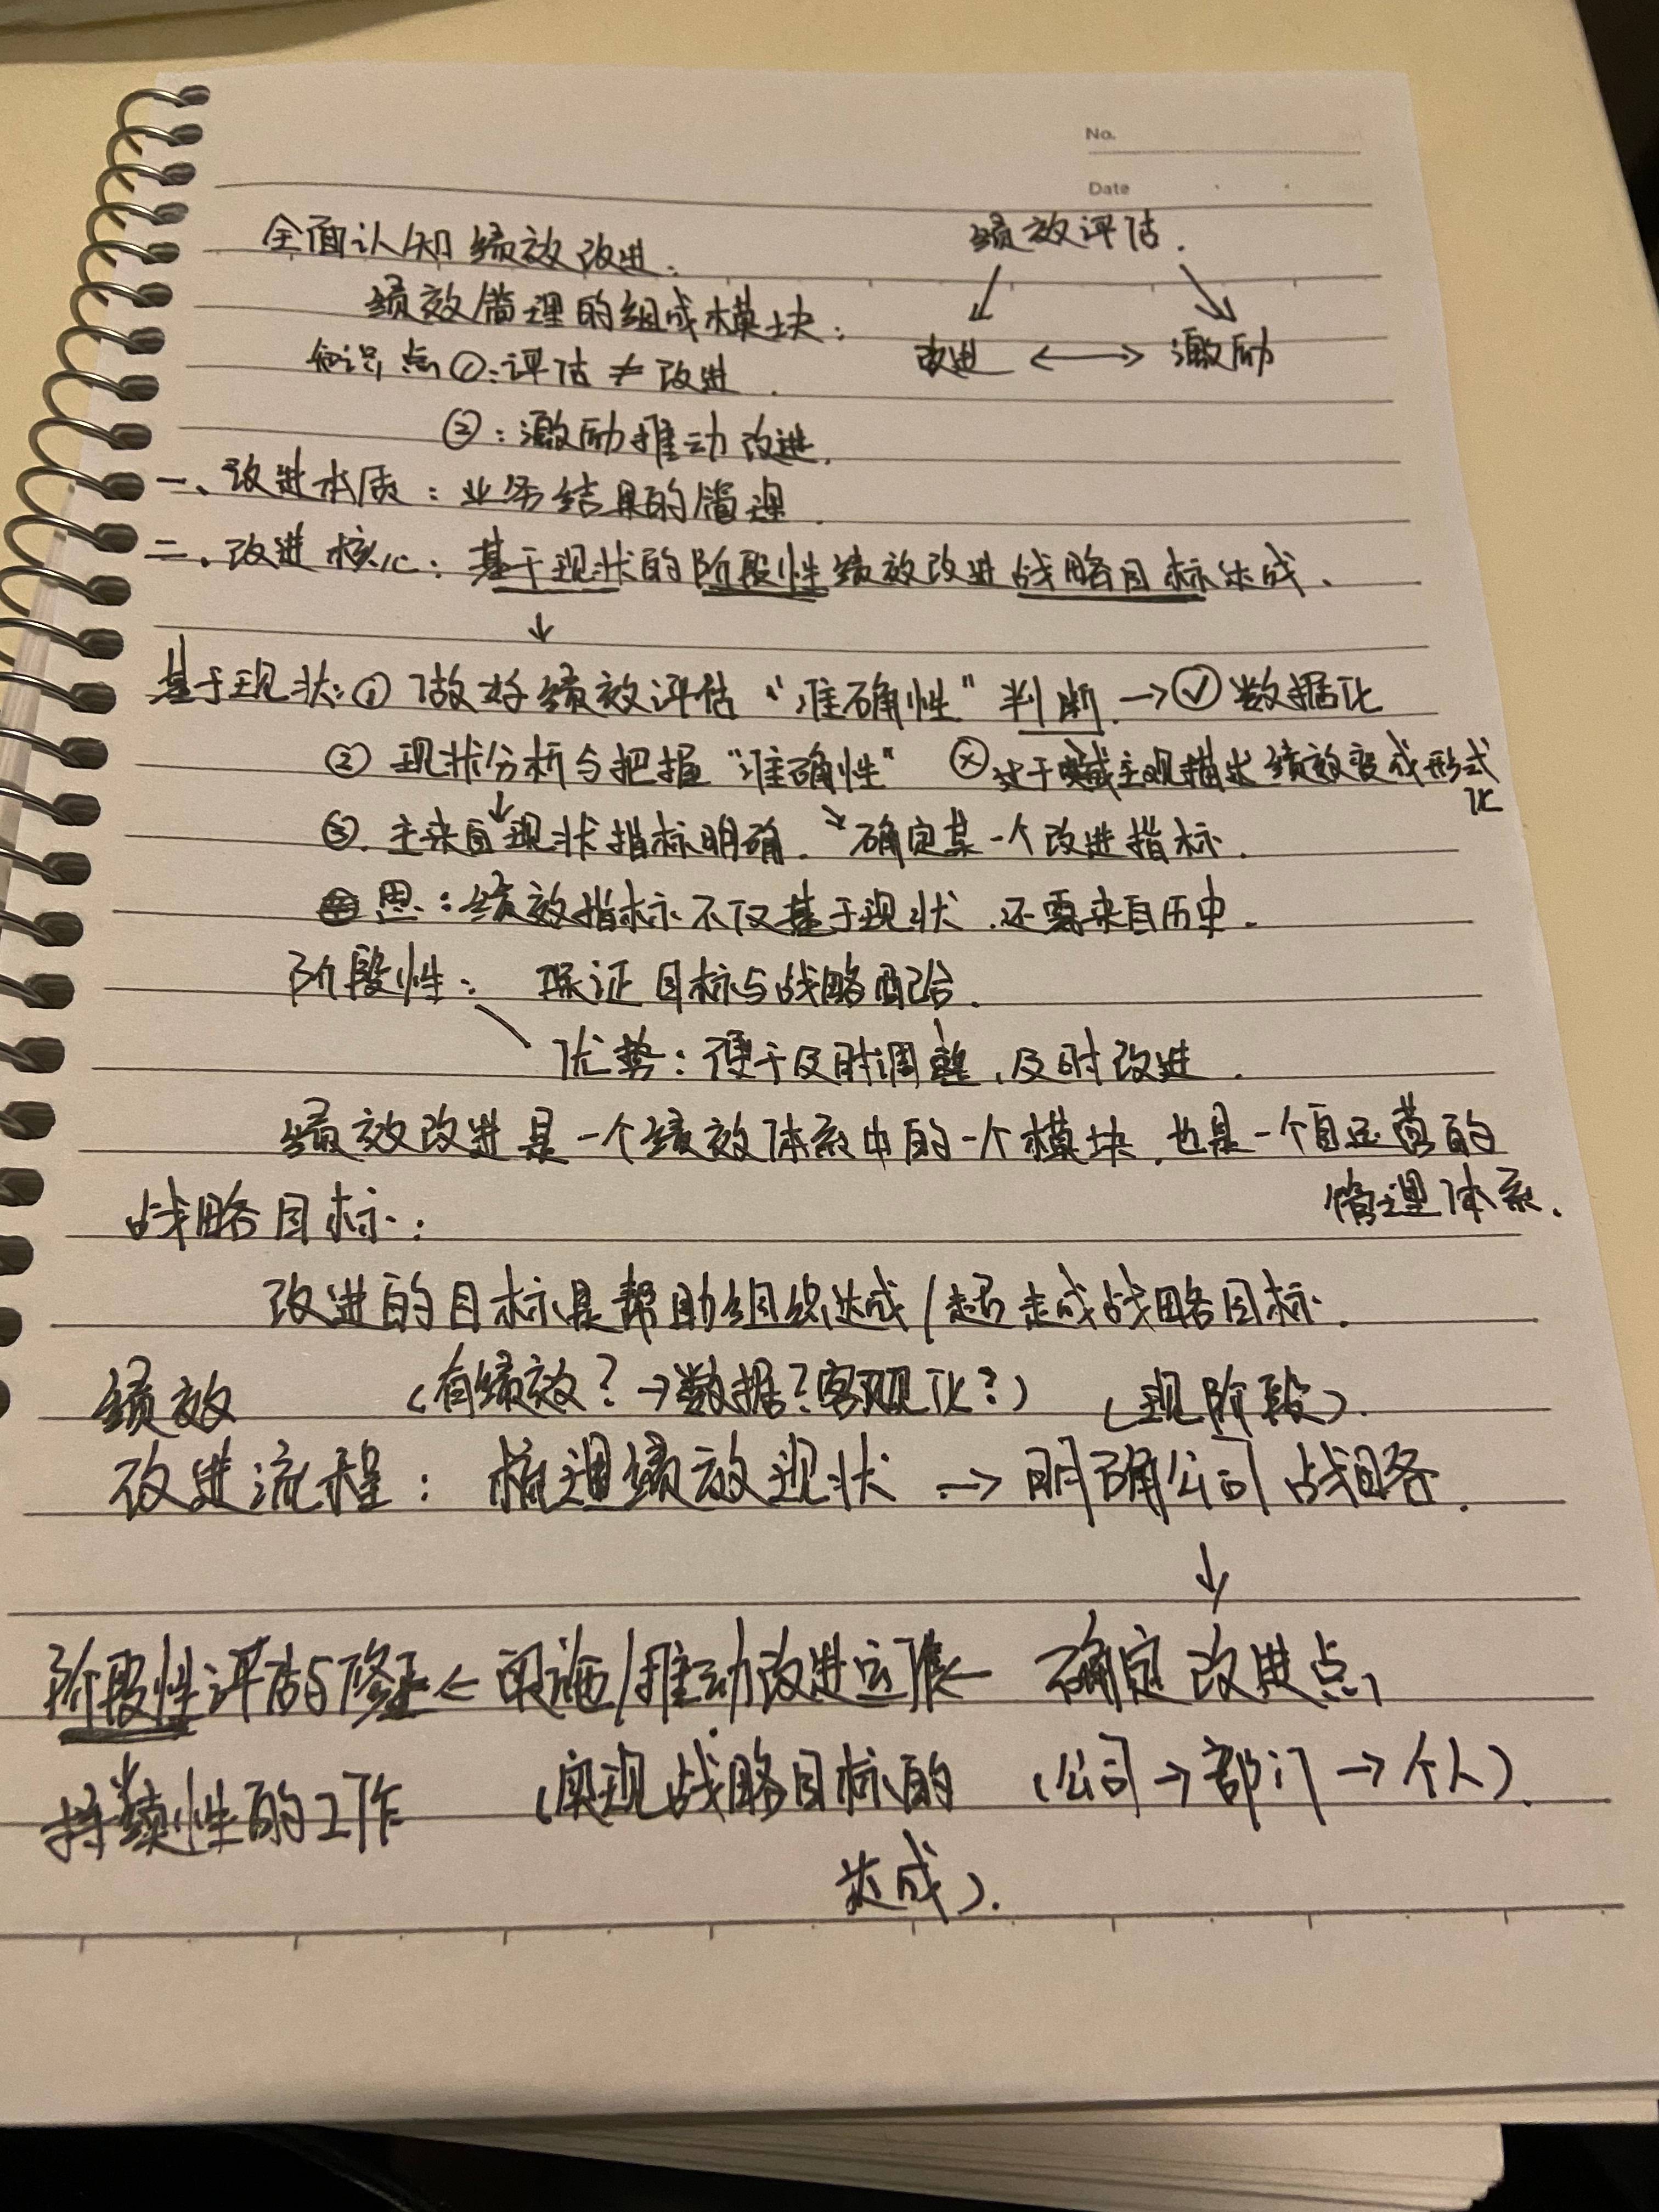 No.
Date
全面认知绩效改进:
绩效评估.
绩效管理的组成模块:
改进 ←→ 激励
知识点①:评估≠改进.
②:激励推动改进.
一、改进本质:业务结果的管理.
二、改进核心:基于现状的阶段性绩效改进战略目标达成.
↓
基于现状:① 做好绩效评估“准确性”判断.→✓数据化
② 现状分析与把握“准确性” ⓧ过于主观描述绩效变成形式化
③. 主来自现状指标明确. ↘确定某一个改进指标.
思:绩效指标不仅基于现状.还需来自历史.
阶段性: 保证目标与战略配合.
优势:便于及时调整,及时改进.
绩效改进是一个绩效体系中的一个模块.也是一个自运营的
管理体系.
战略目标:
改进的目标是帮助组织达成/超达成战略目标.
绩效 (有绩效?→数据?客观化?) (现阶段).
改进流程: 梳理绩效现状 → 明确公司战略.
↓
阶段性评估与修正← 实施/推动改进 ← 确定改进点,
持续性的工作 (实现战略目标的 (公司→部门→个人).
达成).